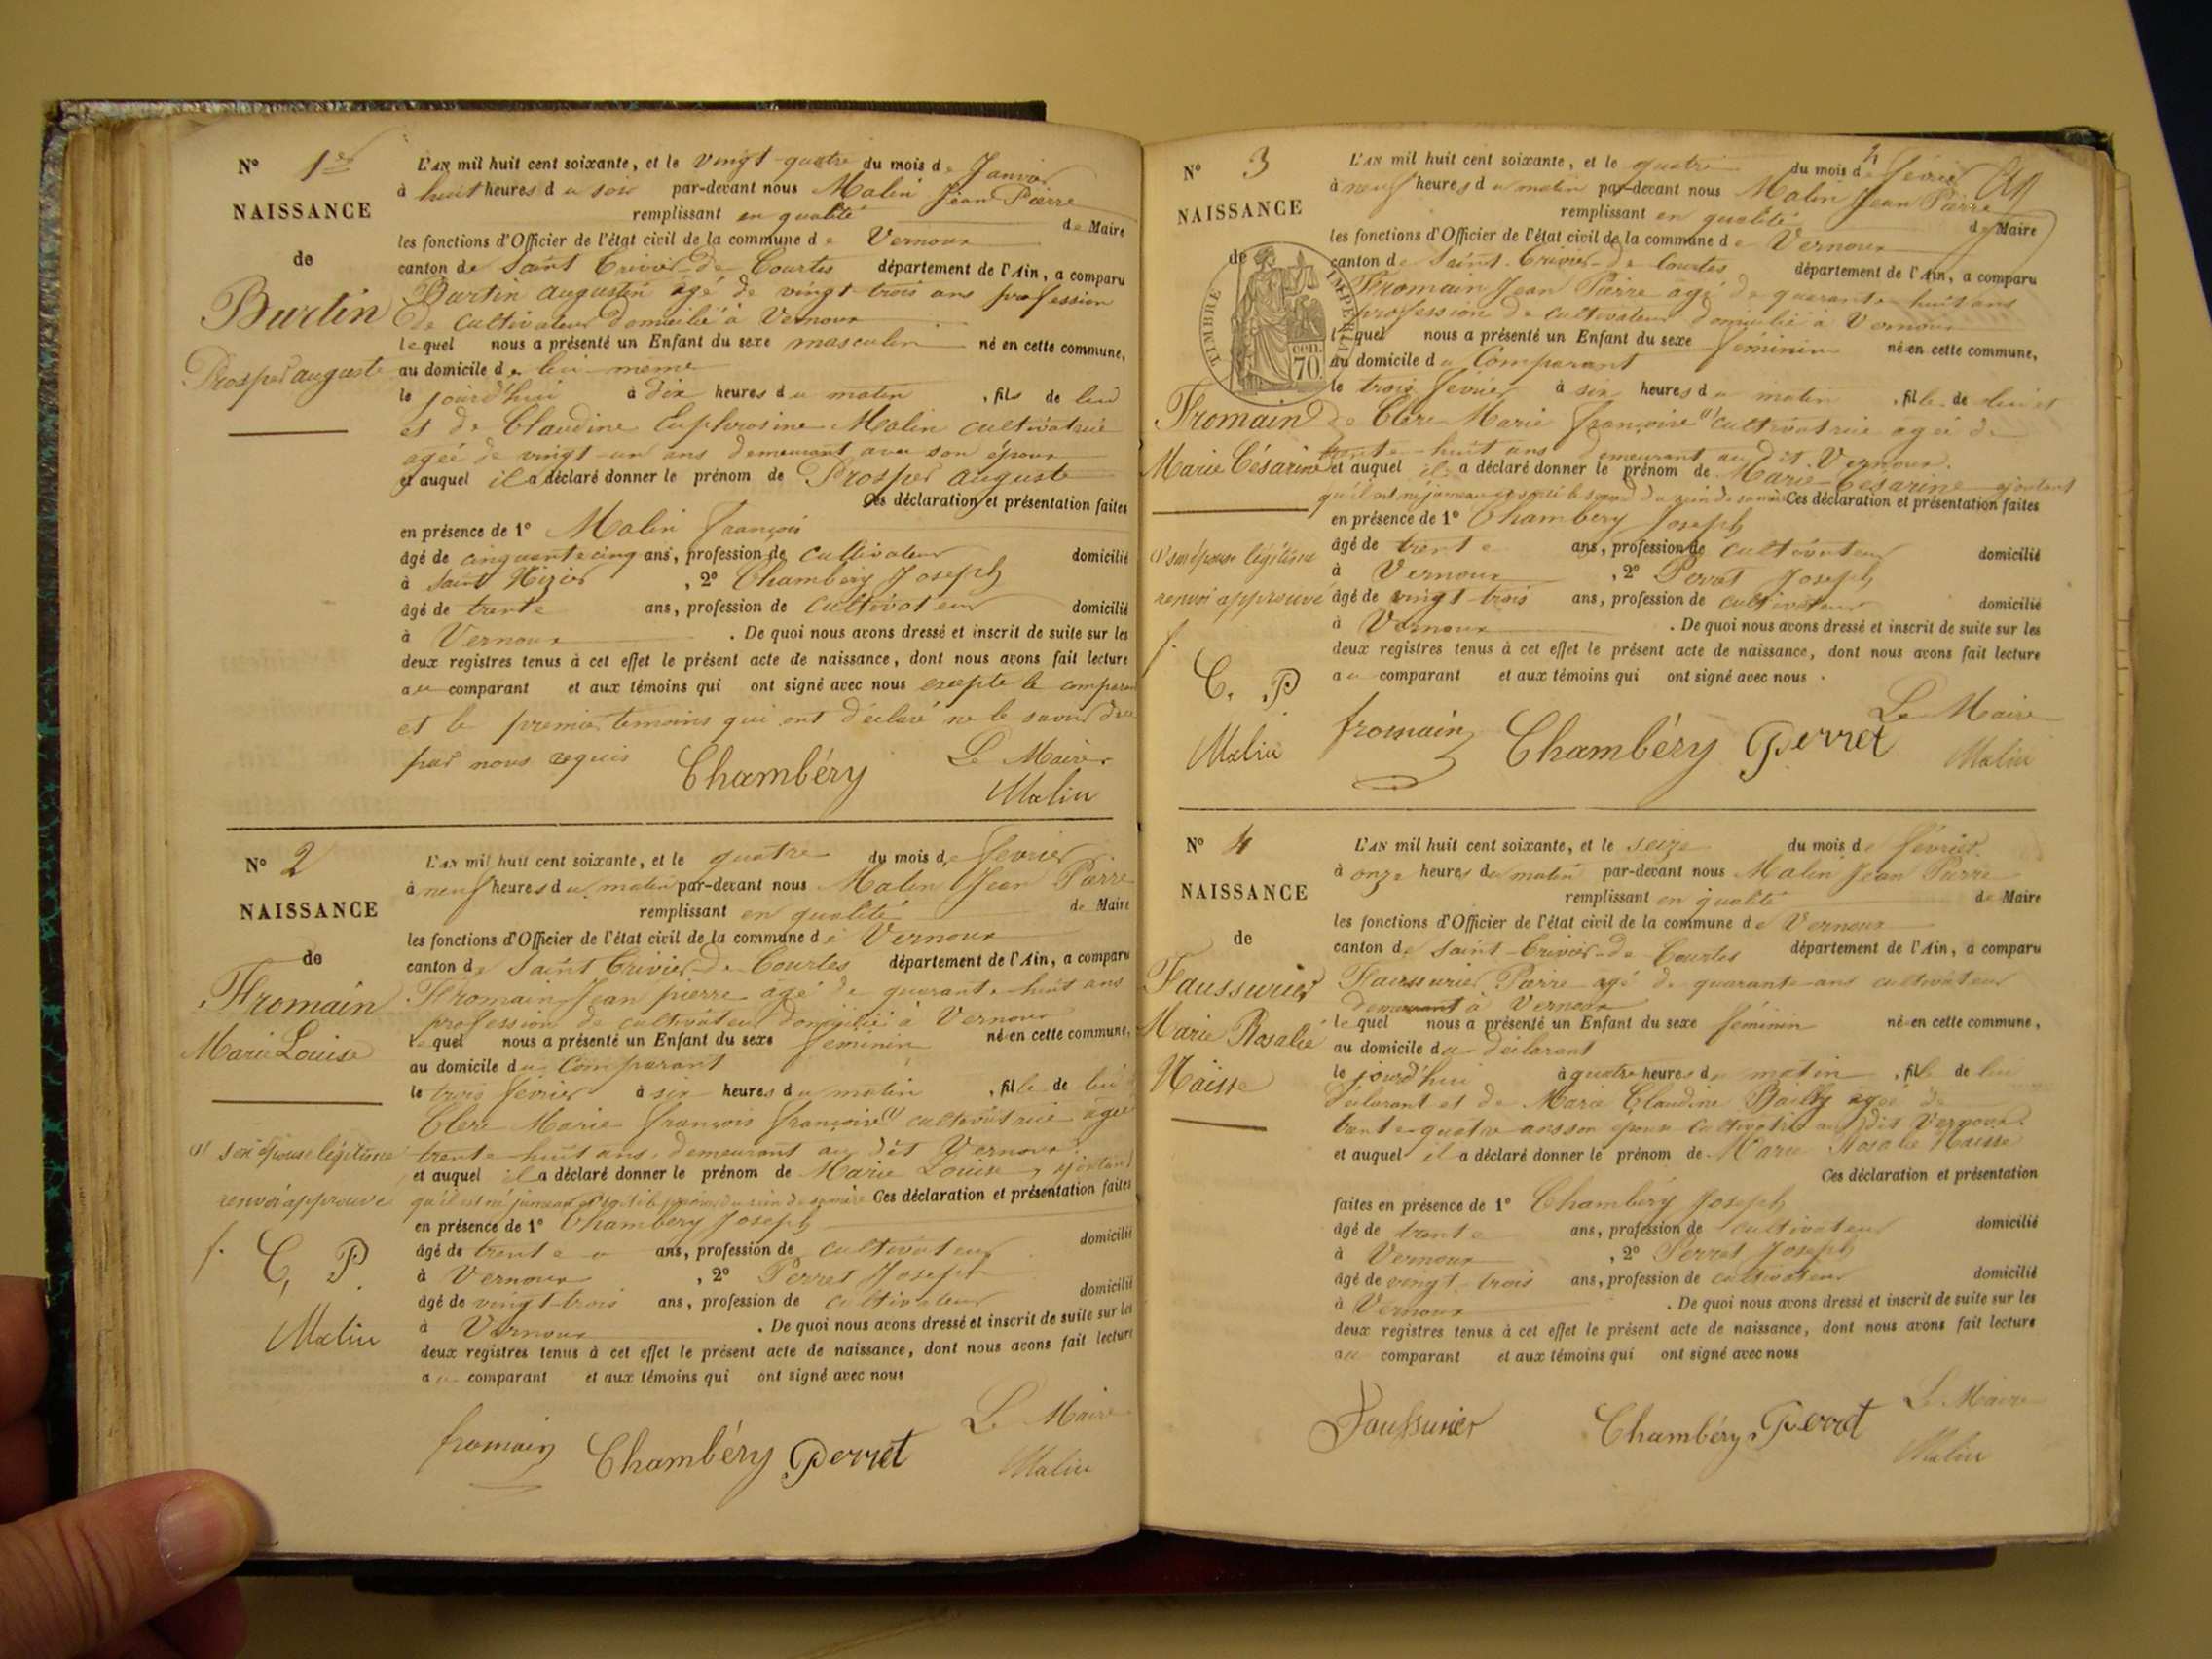 N° 1er
NAISSANCE
de
Burtin
Prosper auguste
L'AN mil huit cent soixante, et le vingt-quatre du mois de Janvier
à huit heures du soir par-devant nous Malin Jean Pierre
remplissant en qualité de Maire
les fonctions d'Officier de l'état civil de la commune de Vernoux
canton de Saint Trivier-de-Courtes département de l'Ain, a comparu
Burtin augustin agé de vingt-trois ans profession
de cultivateur domicilié à Vernoux
lequel nous a présenté un Enfant du sexe masculin né en cette commune,
au domicile de lui-même
le jourd'hui à dix heures du matin, fils de lui
et de Claudine Euphrosine Malin cultivatrice
agée de vingt-un ans demeurant avec son époux
et auquel il a déclaré donner le prénom de Prosper auguste
Ces déclaration et présentation faites
en présence de 1° Malin françois
âgé de cinquante cinq ans, profession de cultivateur domicilié
à Saint Nizier, 2° Chambéry Joseph
âgé de trente ans, profession de cultivateur domicilié
à Vernoux. De quoi nous avons dressé et inscrit de suite sur les
deux registres tenus à cet effet le présent acte de naissance, dont nous avons fait lecture
au comparant et aux témoins qui ont signé avec nous excepté le comparant
et le premier temoins qui ont déclaré ne le savoir de ce
par nous requis
Chambéry
Le Maire
Malin
N° 2
NAISSANCE
de
Fromain
Marie Louise
(1) son épouse légitime
renvoi approuvé
f. C, P.
Malin
L'AN mil huit cent soixante, et le quatre du mois de fevrier
à neuf heures du matin par-devant nous Malin Jean Pierre
remplissant en qualité de Maire
les fonctions d'Officier de l'état civil de la commune de Vernoux
canton de Saint Trivier-de-Courtes département de l'Ain, a comparu
Fromain Jean pierre agé de quarante-huit ans
profession de cultivateur domicilié à Vernoux
lequel nous a présenté un Enfant du sexe feminin né en cette commune,
au domicile du Comparant
le trois fevrier à six heures du matin, fille de lui
Clere Marie françois françoise (1) cultivatrice agée
trente-huit ans, demeurant au dit Vernoux
et auquel il a déclaré donner le prénom de Marie Louise, ajoutant
qu'il est né jumeau du sein de sa mère Ces déclaration et présentation faites
en présence de 1° Chambéry Joseph
âgé de trente ans, profession de cultivateur domicilié
à Vernoux, 2° Perret Joseph
âgé de vingt-trois ans, profession de cultivateur domicilié
à Vernoux. De quoi nous avons dressé et inscrit de suite sur les
deux registres tenus à cet effet le présent acte de naissance, dont nous avons fait lecture
au comparant et aux témoins qui ont signé avec nous
fromain Chambéry Perret
Le Maire
Malin
N° 3
NAISSANCE
de
TIMBRE IMPERIAL
cen. 70.
Fromain
Marie Césarine
(1) son épouse légitime
renvoi approuvé
f.
C. P
Malin
L'AN mil huit cent soixante, et le quatre du mois de fevrier
à neuf heures du matin par-devant nous Malin Jean Pierre
remplissant en qualité de Maire
les fonctions d'Officier de l'état civil de la commune de Vernoux
canton de Saint-Trivier-de Courtes département de l'Ain, a comparu
Fromain Jean Pierre agé de quarante-huit ans
profession de cultivateur domicilié à Vernoux
lequel nous a présenté un Enfant du sexe feminin né en cette commune,
au domicile du Comparant
le trois fevrier à six heures du matin, fille de lui et
de Clere Marie françoise (1) cultivatrice agée de
trente-huit ans demeurant au dit Vernoux.
et auquel il a déclaré donner le prénom de Marie-Césarine ajoutant
qu'il est né jumeau et sorti le second du sein de sa mère Ces déclaration et présentation faites
en présence de 1° Chambéry Joseph
âgé de trente ans, profession de cultivateur domicilié
à Vernoux, 2° Perret Joseph
âgé de vingt-trois ans, profession de cultivateur domicilié
à Vernoux. De quoi nous avons dressé et inscrit de suite sur les
deux registres tenus à cet effet le présent acte de naissance, dont nous avons fait lecture
au comparant et aux témoins qui ont signé avec nous.
Le Maire
fromain Chambéry Perret Malin
N° 4
NAISSANCE
de
Faussurier
Marie Rosalie
Naisse
L'AN mil huit cent soixante, et le seize du mois de février
à onze heures du matin par-devant nous Malin Jean Pierre
remplissant en qualité de Maire
les fonctions d'Officier de l'état civil de la commune de Vernoux
canton de Saint-Trivier-de-Courtes département de l'Ain, a comparu
Faussurier Pierre agé de quarante ans cultivateur
demeurant à Vernoux
lequel nous a présenté un Enfant du sexe féminin né en cette commune,
au domicile du déclarant
le jourd'hui à quatre heures du matin, fille de lui
déclarant et de Marie Claudine Bailly agée de
trente-quatre ans son épouse cultivatrice au dit Vernoux.
et auquel il a déclaré donner le prénom de Marie Rosalie Naisse
Ces déclaration et présentation
faites en présence de 1° Chambéry Joseph
âgé de trente ans, profession de cultivateur domicilié
à Vernoux, 2° Perret Joseph
âgé de vingt-trois ans, profession de cultivateur domicilié
à Vernoux. De quoi nous avons dressé et inscrit de suite sur les
deux registres tenus à cet effet le présent acte de naissance, dont nous avons fait lecture
au comparant et aux témoins qui ont signé avec nous
Le Maire
Faussurier Chambéry Perret Malin